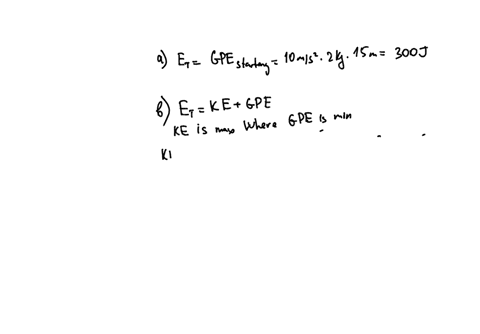 a) E_T = GPE starting = 10 m/s² · 2 kg · 15 m = 300 J
b) E_T = KE + GPE
KE is max where GPE is min
KI